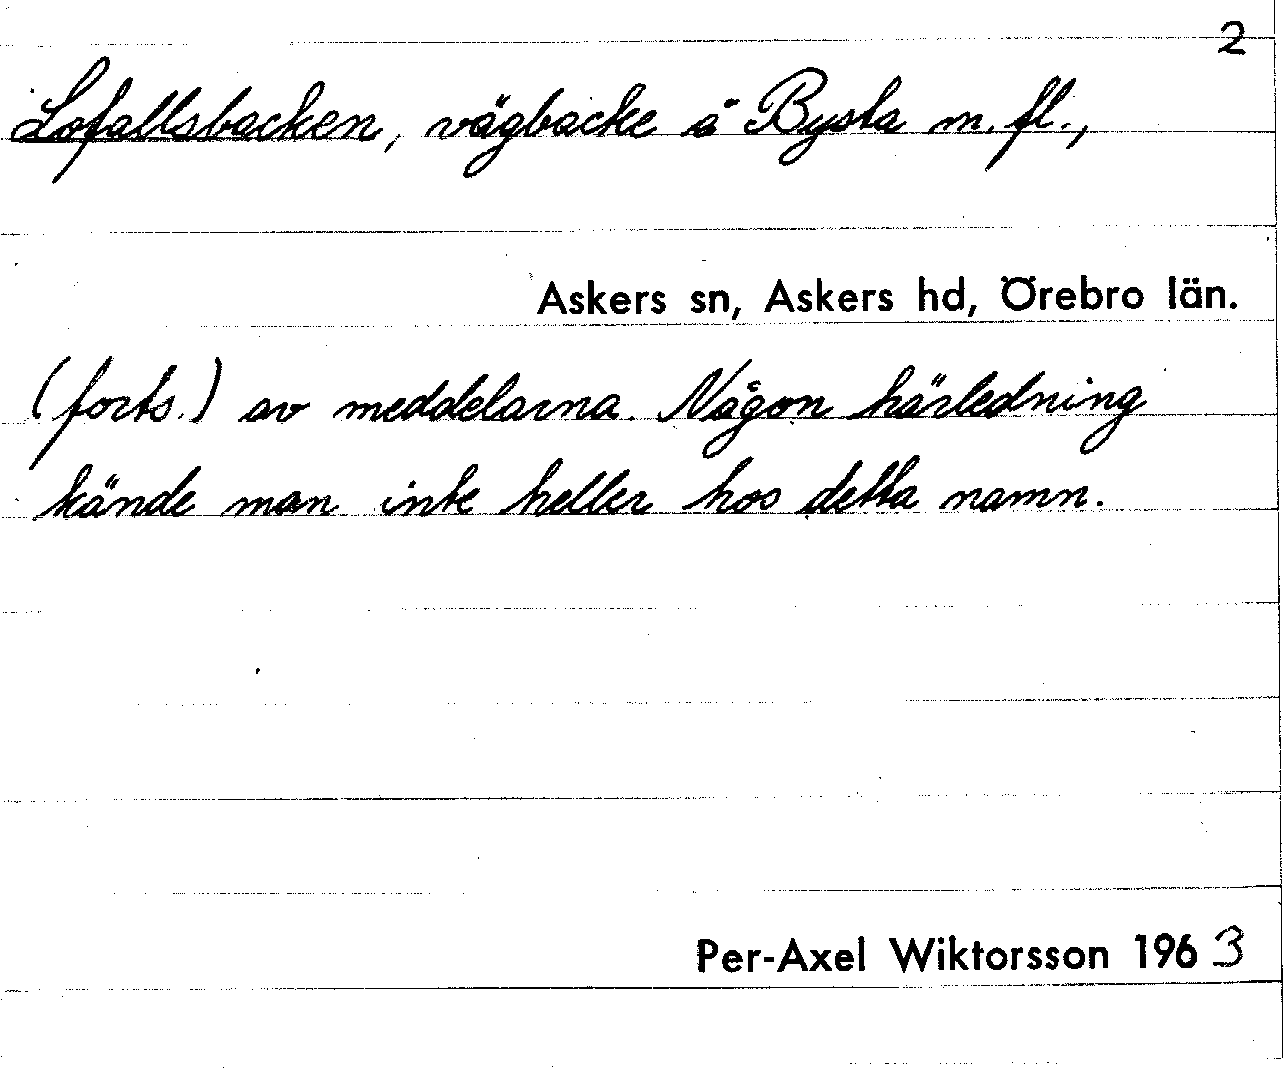 2
Lofallsbacken, vägbacke å Bysta m. fl.,
Askers sn, Askers hd, Örebro län.
(forts.) av meddelarna. Någon härledning
kände man inte heller hos detta namn.
Per-Axel Wiktorsson 1963